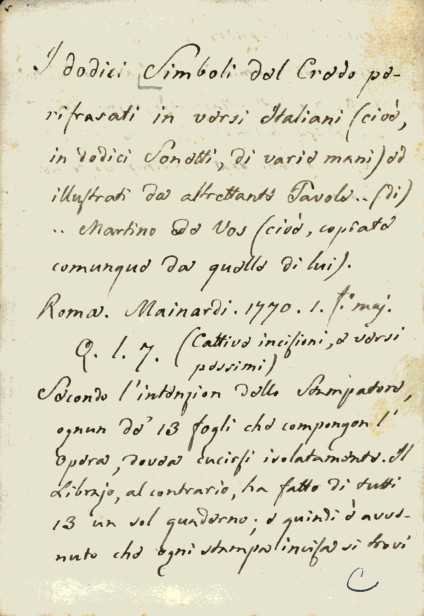 I dodici Simboli del Credo pa-
rifrasati in versi Italiani (cioè,
in dodici Sonetti, di varie mani) ed
illustrati da altrettante Tavole.. (di)
.. Martino de Vos (cioè, copiate
comunque da quelle di lui).
Roma. Mainardi. 1770. 1. f.o maj.
Q. l. 7. (Cattive incisioni, e versi
pessimi)
Secondo l'intenzion dello Stampatore,
ognun de' 13 fogli che compongon l'
Opera, dovea cucirsi isolatamente. Il
Librajo, al contrario, ha fatto di tutti
13 un sol quaderno; e quindi è avve-
nuto che ogni stampa incisa si trovi
C